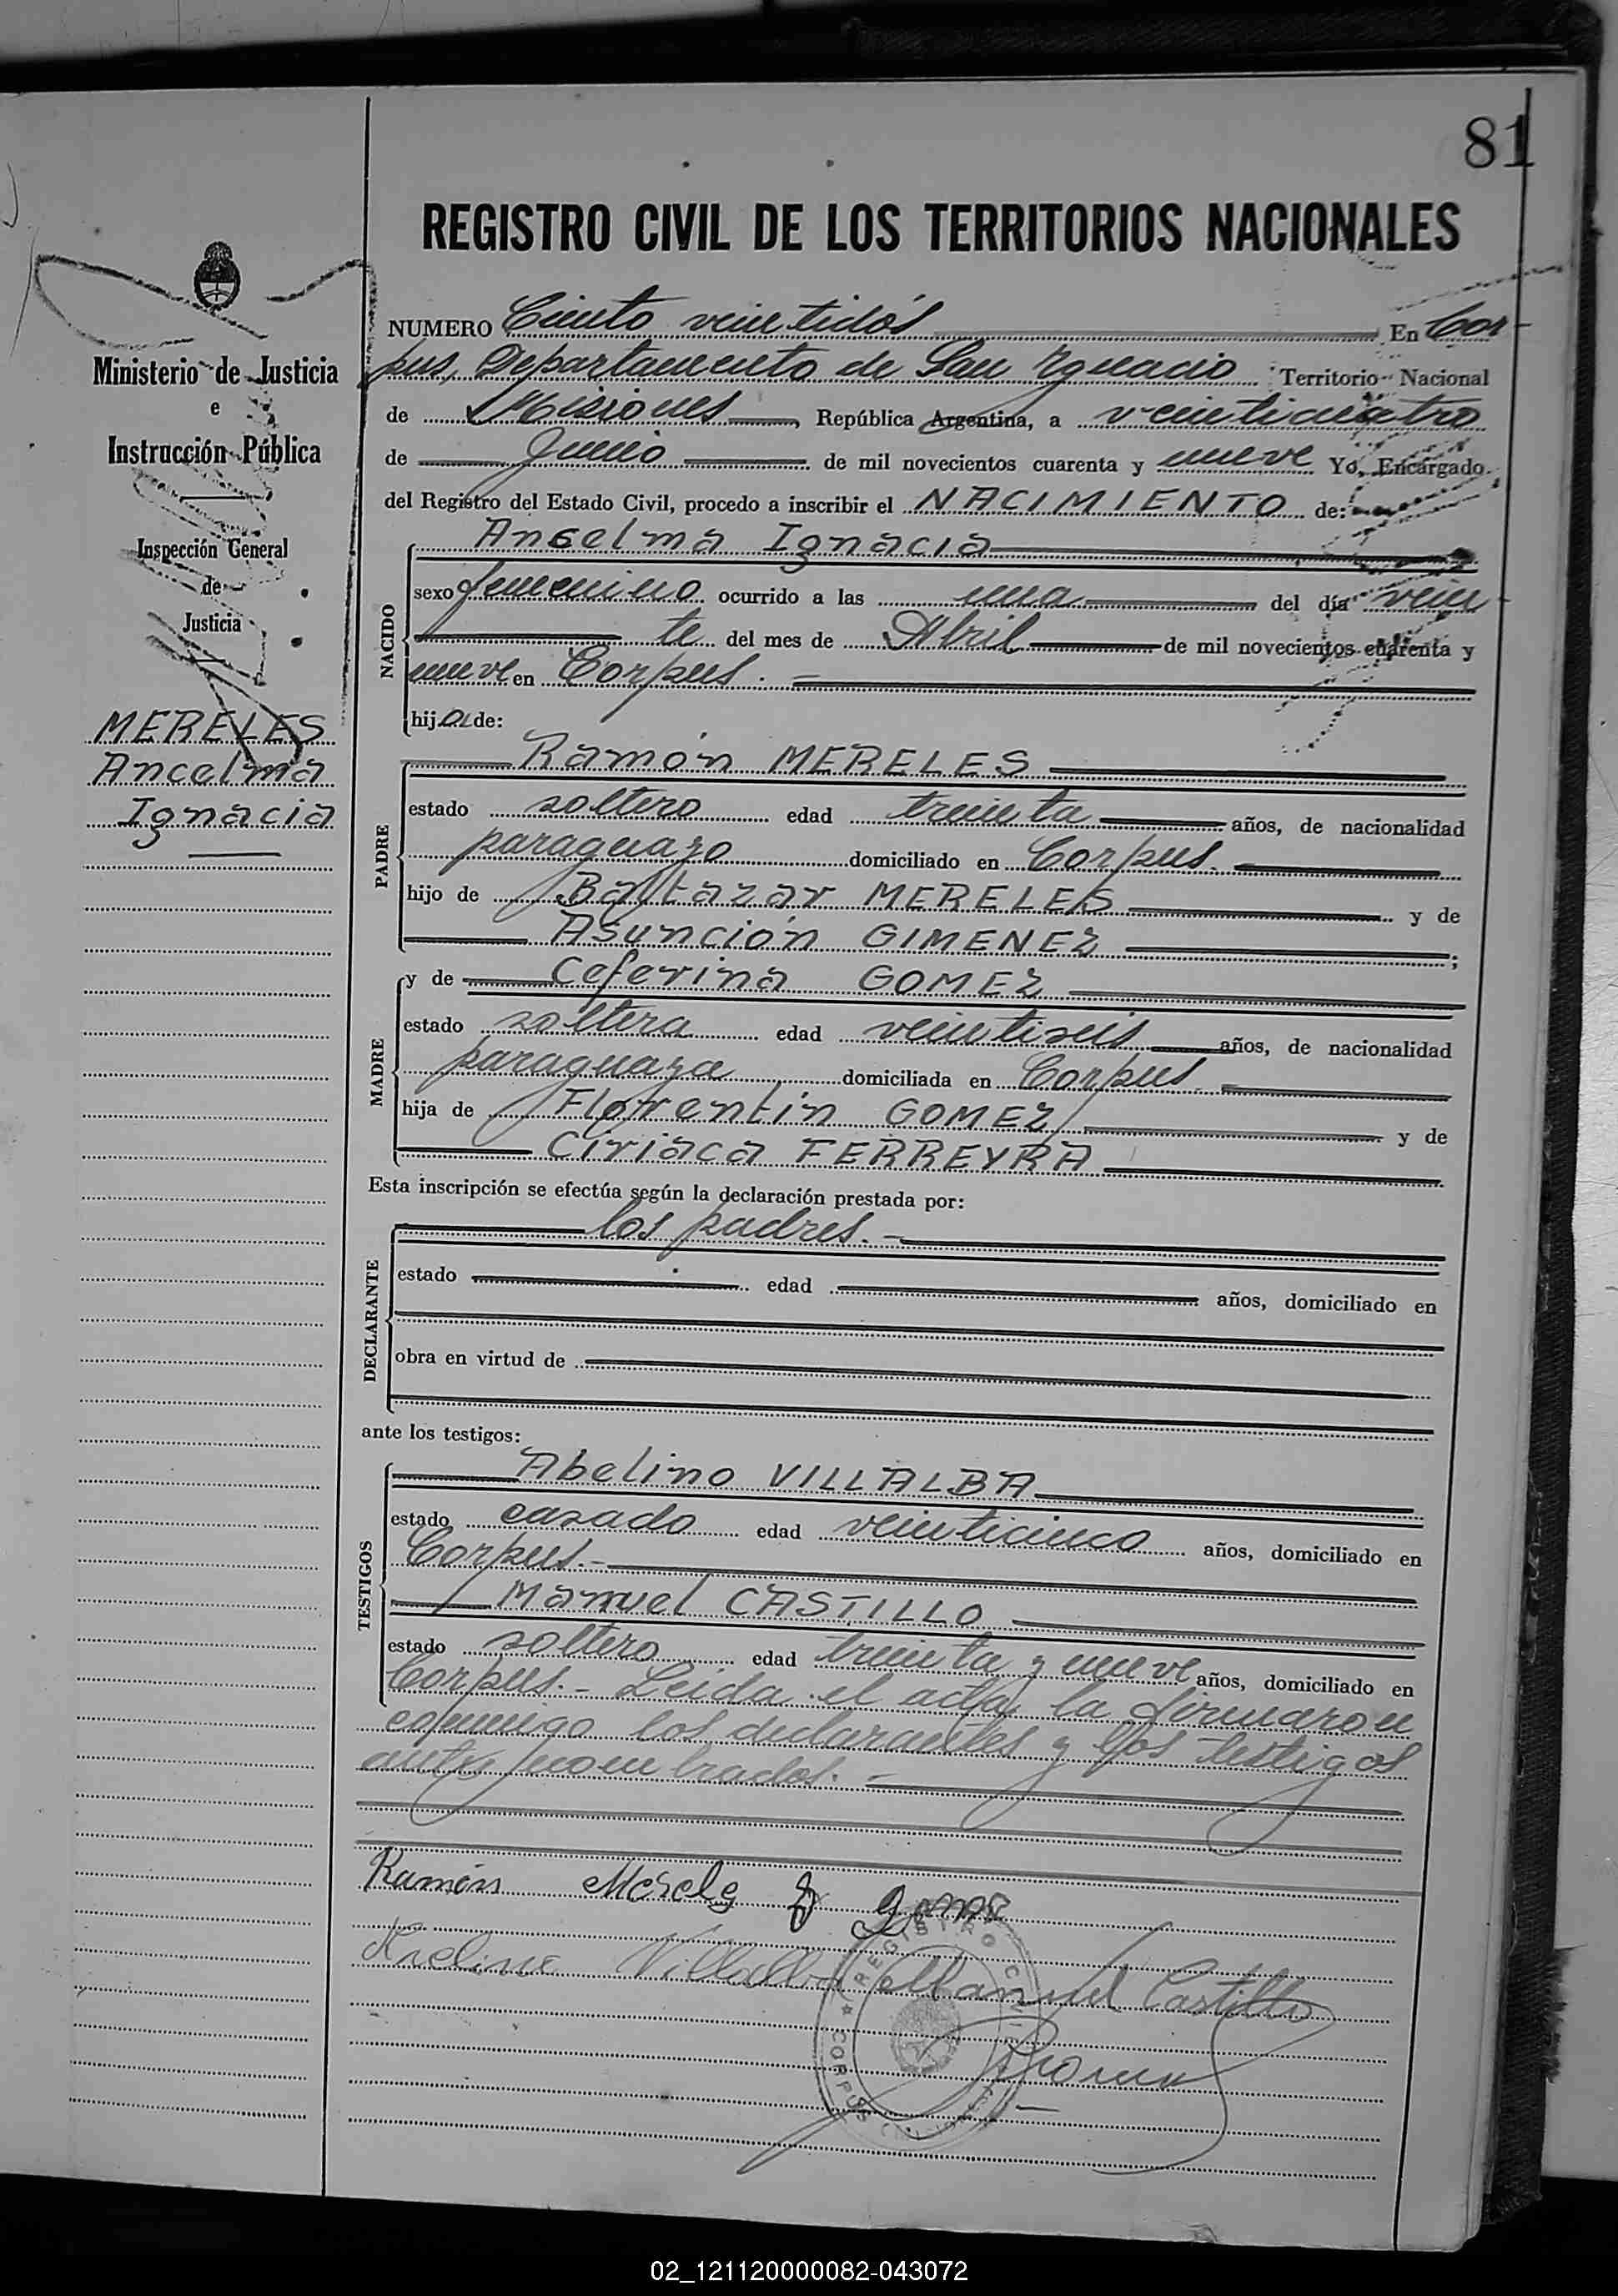 81
REGISTRO CIVIL DE LOS TERRITORIOS NACIONALES
Ministerio de Justicia
e
Instrucción Pública
Inspección General
de
Justicia
MERELES
Ancelma
Ignacia
NUMERO Ciento veintidós En Cor-
pus, Departamento de San Ygnacio Territorio Nacional
de Misiones, República Argentina, a veinticuatro
de Junio de mil novecientos cuarenta y nueve Yo, Encargado
del Registro del Estado Civil, procedo a inscribir el NACIMIENTO de:
NACIDO
Ancelma Ignacia
sexo femenino ocurrido a las una del día vein-
te del mes de Abril de mil novecientos cuarenta y
nueve en Corpus.-
hija de:
PADRE
Ramón MERELES
estado soltero edad treinta años, de nacionalidad
paraguayo domiciliado en Corpus.
hijo de Baltazar MERELES y de
Asunción GIMENEZ ;
MADRE
y de Ceferina GOMEZ
estado soltera edad veintiseis años, de nacionalidad
paraguaya domiciliada en Corpus.
hija de Florentín GOMEZ y de
Ciriaca FERREYRA
Esta inscripción se efectúa según la declaración prestada por:
DECLARANTE
los padres.-
estado edad años, domiciliado en
obra en virtud de
ante los testigos:
TESTIGOS
Abelino VILLALBA
estado casado edad veinticinco años, domiciliado en
Corpus.-
Manuel CASTILLO
estado soltero edad treinta y nueve años, domiciliado en
Corpus.- Leida el acta, la firmaron
conmigo los declarantes y los testigos
antes nombrados.-
Ramón Merele Gomez
Villalba Manuel Castillo
REGISTRO CIVIL
CORPUS
02_121120000082-043072